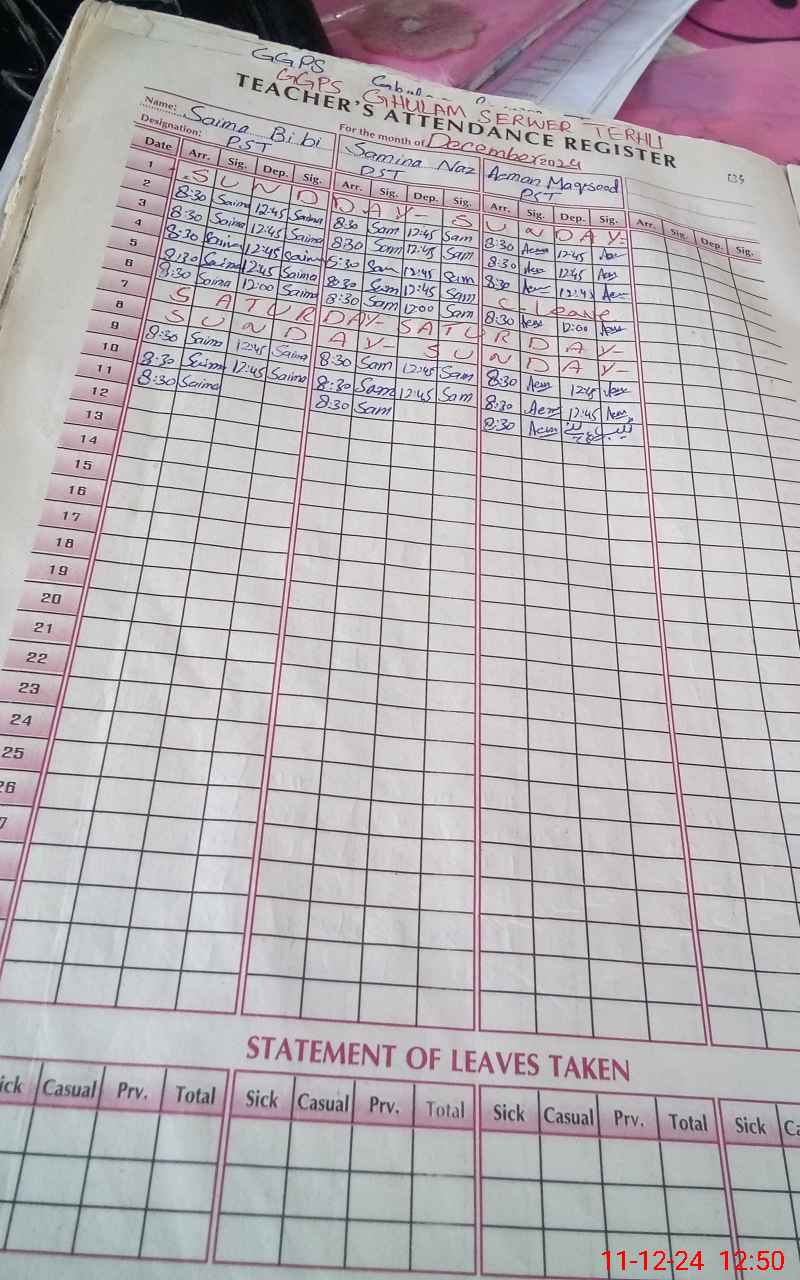 GGPS
GGPS GHULAM SERWER TERHU
TEACHER'S ATTENDANCE REGISTER
Name: Saima Bibi Samina Naz Aeman Maqsood
For the month of December 2024
Designation: PST PST PST
Date Arr. Sig. Dep. Sig. Arr. Sig. Dep. Sig. Arr. Sig. Dep. Sig. Arr. Sig. Dep. Sig.
1 SUNDDAY- SUNDAY-
2 8:30 Saima 12:45 Saima 8:30 Sam 12:45 Sam 8:30 Aem 12:45 Aem
3 8:30 Saima 12:45 Saima 8:30 Sam 12:45 Sam 8:30 Aem 12:45 Aem
4 8:30 Saima 12:45 Saima 8:30 Sam 12:45 Sam 8:30 Aem 12:45 Aem
5 8:30 Saima 12:45 Saima 8:30 Sam 12:45 Sam C-Leave
6 8:30 Saima 12:00 Saima 8:30 Sam 12:00 Sam 8:30 Aem 12:00 Aem
7 SATURDAY- SATURDAY-
8 SUNDAY- SUNDAY-
9 8:30 Saima 12:45 Saima 8:30 Sam 12:45 Sam 8:30 Aem 12:45 Aem
10 8:30 Saima 12:45 Saima 8:30 Sam 12:45 Sam 8:30 Aem 12:45 Aem
11 8:30 Saima 8:30 Sam 8:30 Aem
12
13
14
15
16
17
18
19
20
21
22
23
24
25
26
7
STATEMENT OF LEAVES TAKEN
ick Casual Prv. Total Sick Casual Prv. Total Sick Casual Prv. Total Sick Ca
11-12-24 12:50